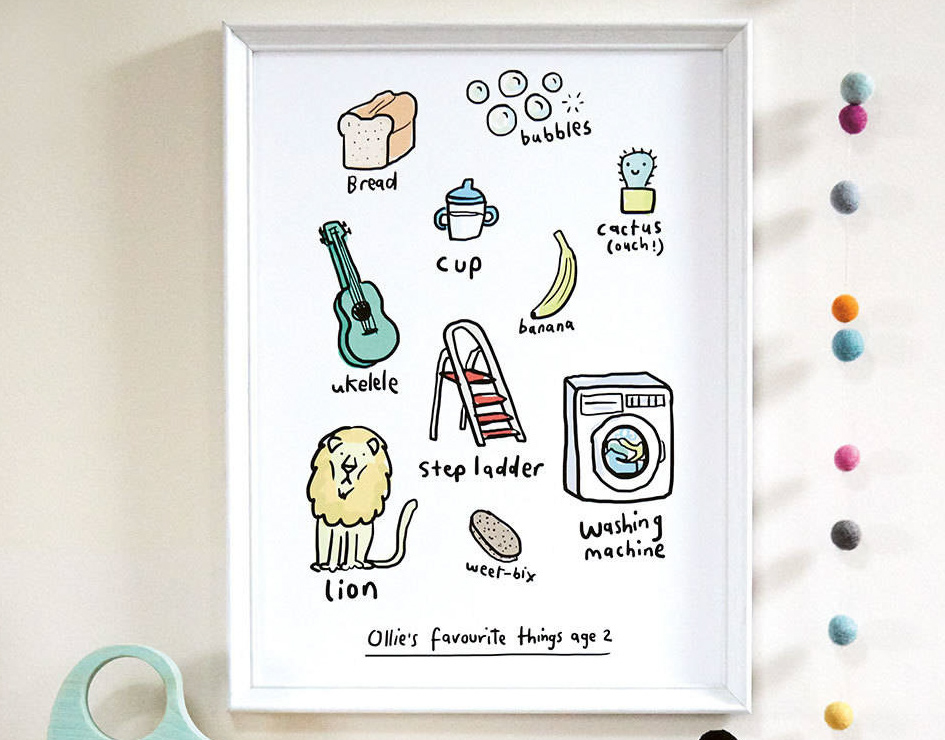 bubbles
Bread
cactus
(ouch!)
cup
banana
ukelele
step ladder
washing
machine
weet-bix
lion
Ollie's favourite things age 2